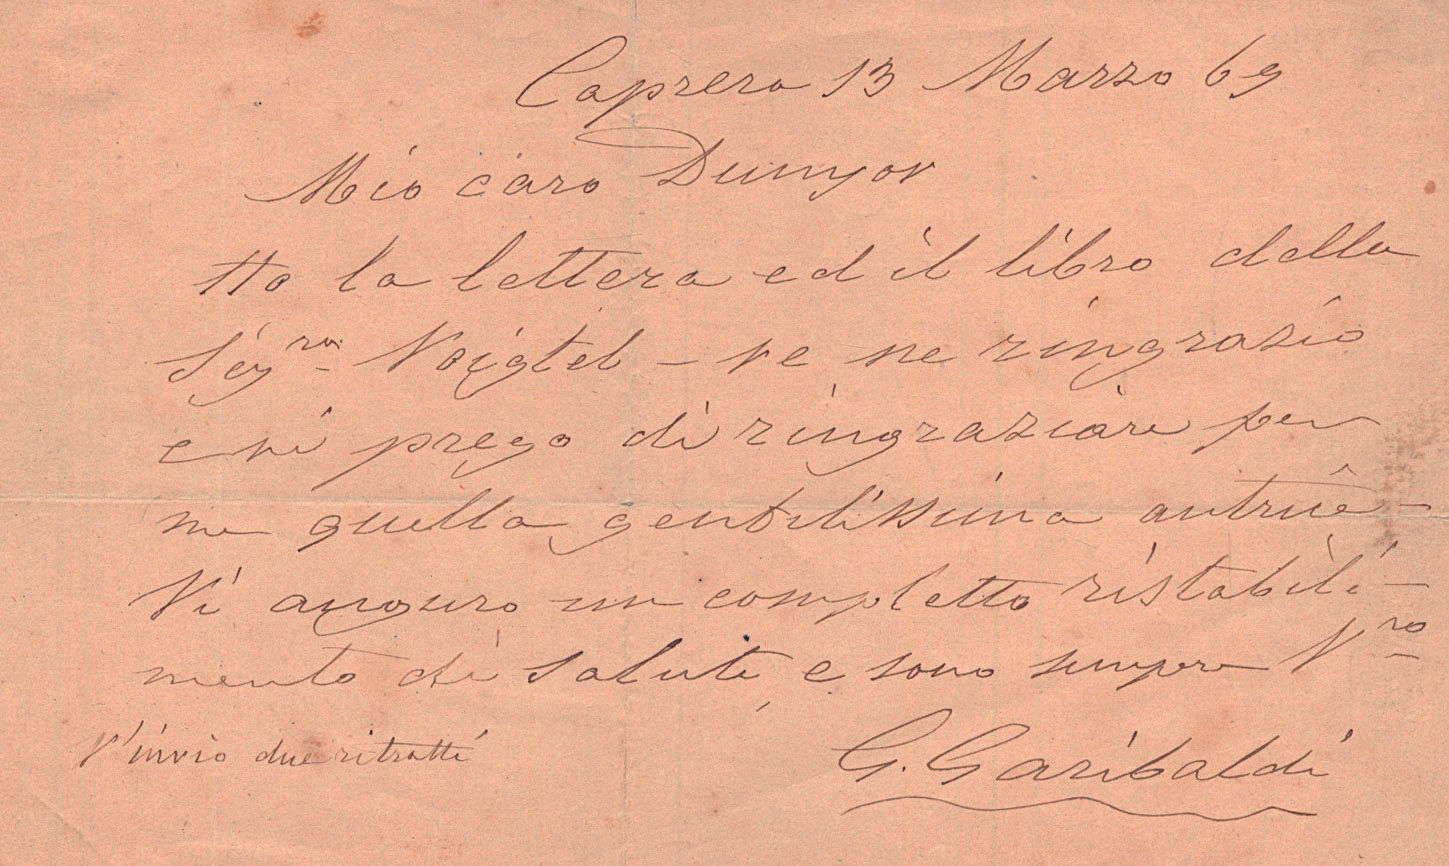 Caprera 13 Marzo 69
Mio caro Dunyov
Ho la lettera ed il libro della
Sigra Voigtel – ve ne ringrazio
e vi prego di ringraziare per
me quella gentilissima autrice –
Vi auguro un completto ristabili–
mento di salute, e sono sempre Vro
G. Garibaldi
V'invio due ritratti